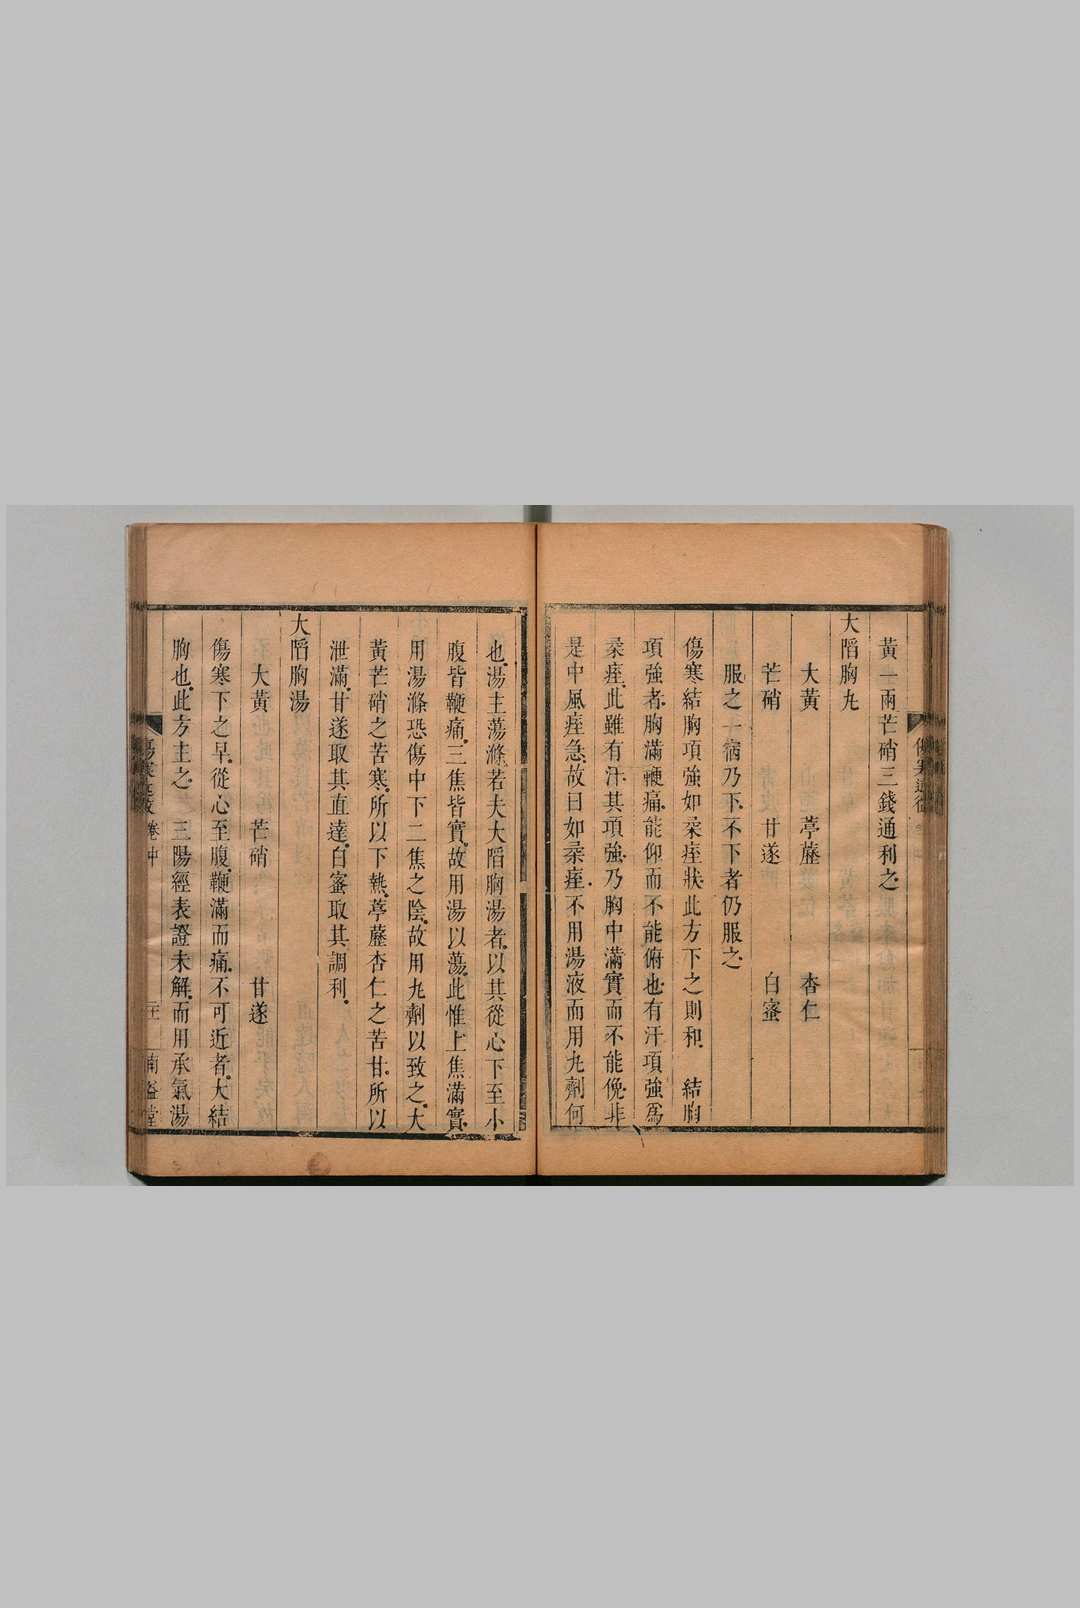 黃一兩芒硝三錢通利之
大䧟胸丸
大黃 葶藶 杏仁
芒硝 甘遂 白蜜
服之一病乃下不下者仍服之
傷寒結胸項強如柔痓狀此方下之則和 結胸
項強者胸滿鞕痛能仰而不能俯也有汗項強爲
柔痓此雖有汗其項強乃胸中滿實而不能俛非
是中風痓急故曰如柔痓不用湯液而用丸劑何
也湯主蕩滌若夫大䧟胸湯者以其從心下至小
腹皆鞕痛三焦皆實故用湯以蕩此惟上焦滿實
用湯滌恐傷中下二焦之陰故用丸劑以致之大
黃芒硝之苦寒所以下熱葶藶杏仁之苦甘所以
泄滿甘遂取其直達白蜜取其調利
大䧟胸湯
大黃 芒硝 甘遂
傷寒下之早從心至腹鞕滿而痛不可近者大結
胸也此方主之 三陽經表證未解而用承氣湯
卷中